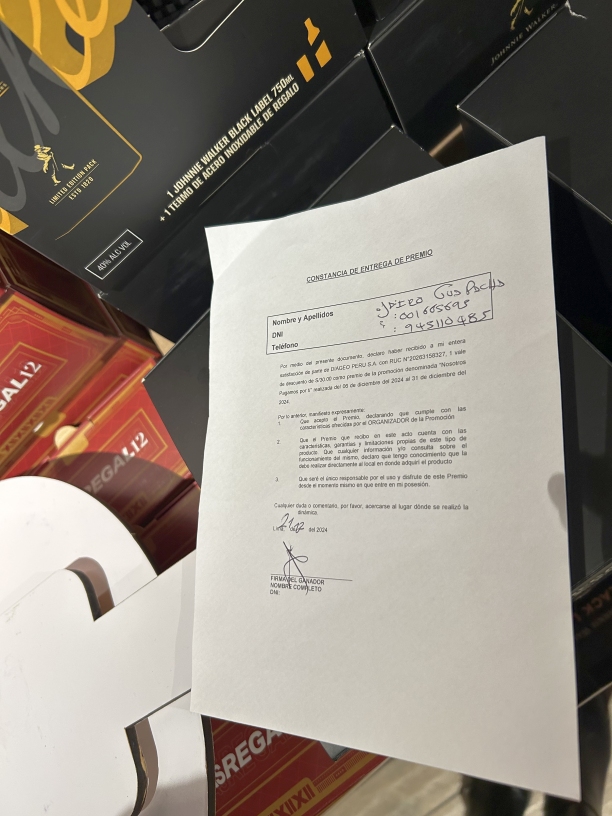 JOHNNIE WALKER
1 JOHNNIE WALKER BLACK LABEL 750ML
+ 1 TERMO DE ACERO INOXIDABLE DE REGALO
LIMITED EDITION PACK
ESTD 1820
40% ALC VOL
CONSTANCIA DE ENTREGA DE PREMIO
Nombre y Apellidos
DNI : 001665695
Teléfono : 945110485
Por medio del presente documento, declaro haber recibido a mi entera
satisfacción de parte de DIAGEO PERU S.A. con RUC N°20263158327, 1 vale
de descuento de S/30.00 como premio de la promoción denominada "Nosotros
Pagamos por ti" realizada del 06 de diciembre del 2024 al 31 de diciembre del
2024.
Por lo anterior, manifiesto expresamente:
1. Que acepto el Premio, declarando que cumple con las
características ofrecidas por el ORGANIZADOR de la Promoción
2. Que el Premio que recibo en este acto cuenta con las
características, garantías y limitaciones propias de este tipo de
producto. Que cualquier información y/o consulta sobre el
funcionamiento del mismo, declaro que tengo conocimiento que la
debo realizar directamente al local en donde adquirí el producto
3. Que seré el único responsable por el uso y disfrute de este Premio
desde el momento mismo en que entre en mi posesión.
Cualquier duda o comentario, por favor, acercarse al lugar dónde se realizó la
dinámica.
21 12 del 2024
FIRMA DEL GANADOR
NOMBRE COMPLETO
DNI:
GAL 12
REGAL 12
SREGA
XIIXII